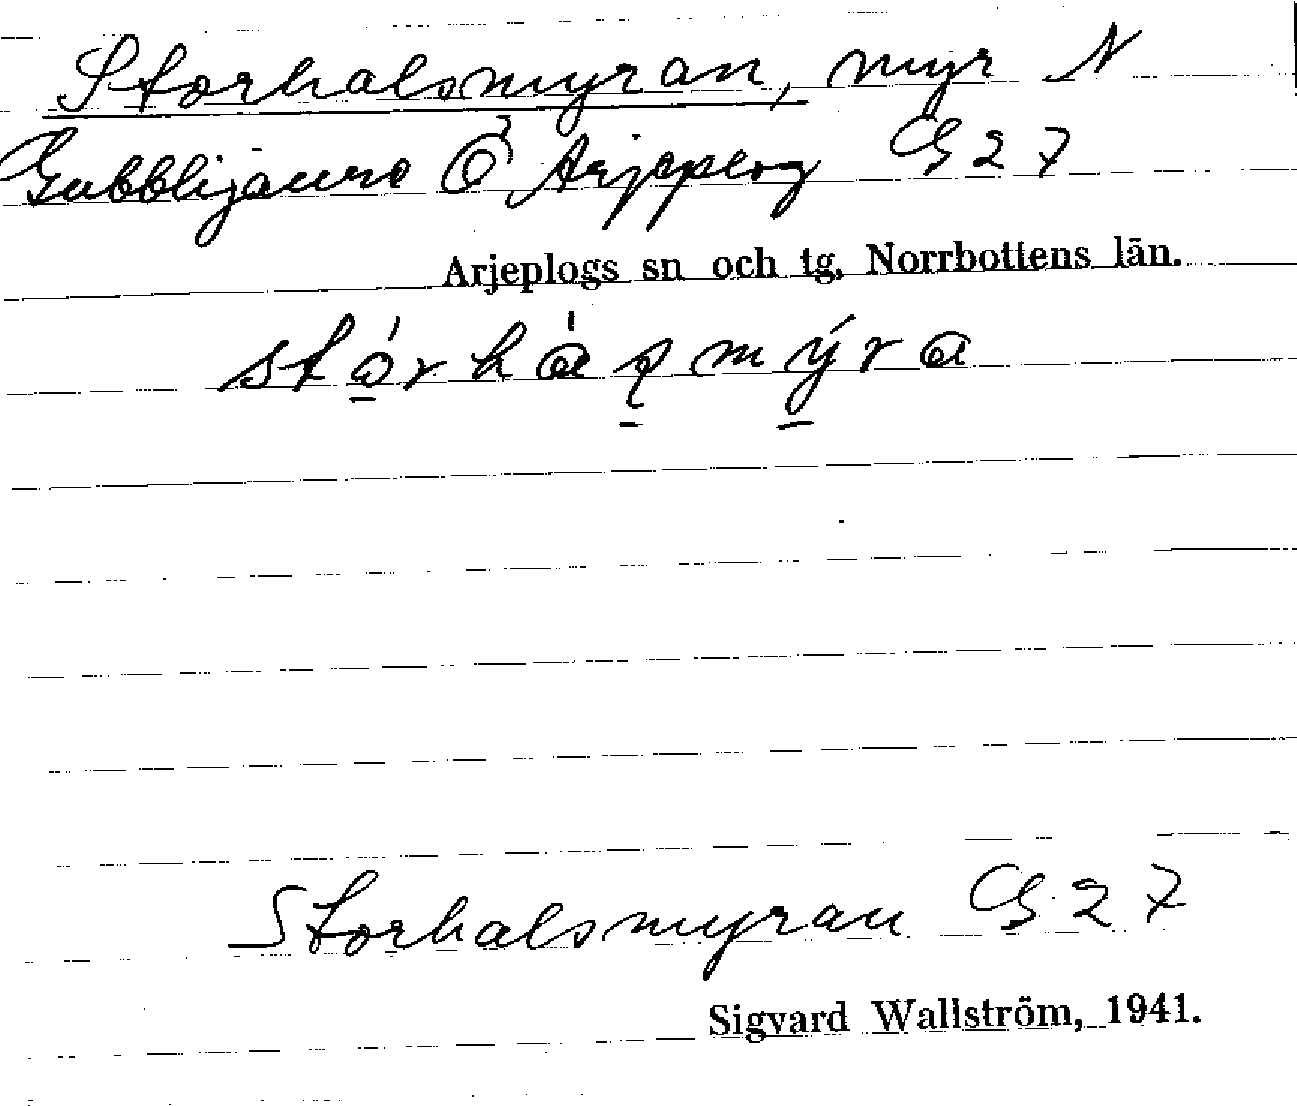 Storhalsmyran, myr N
Gubblijaure Ö, Arjeplog G 27
Arjeplogs sn och tg, Norrbottens län.
Storhalsmyran G 27
Sigvard Wallström, 1941.